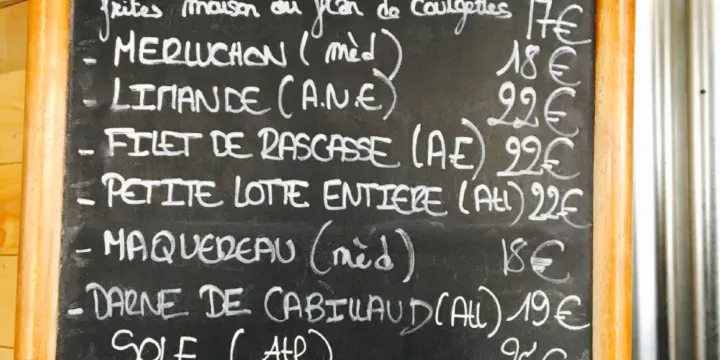 frites maison ou flan de courgettes 17€
- MERLUCHON (mèd) 18€
- LIMANDE (A.N.E) 22€
- FILET DE RASCASSE (A.E) 22€
- PETITE LOTTE ENTIERE (Atl) 22€
- MAQUEREAU (mèd) 18€
- DARNE DE CABILLAUD (Atl) 19€
SOLE (Atl)